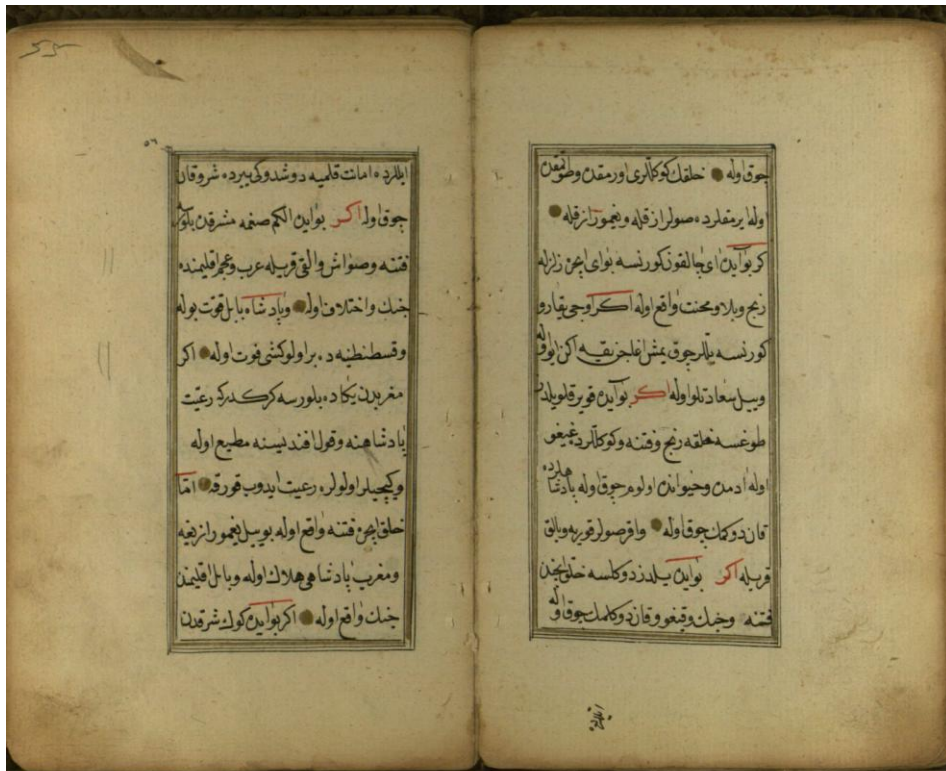 چوق اوله خلقك كوكللرى اورمقدن وطوتمقدن
اوله ايرمقلرده صولر از قله ويغمور از قله
كر بو آيده آى چالقوز كورنسه بو آى ايچره زلزله
رنج وبلا ومحنت واقع اوله اكر اوجى يقارو
كورنسه يللر چوق يمش اغلجز يقيه اكن ايو اوله
وييل سعادتلو اوله اكر بو آيده قوير قلو يلدز
طوغسه خلقه رنج وفتنه وكوكللرده غيغو
اوله آدمدن وحيواندن اولوم چوق اوله پادشاهلرده
قان دوكمك چوق اوله وافر صولر قوريه وبالق
قريله اكر بو آيده يلدز دوكلسه خلق ايچنده
فتنه وجنك وقيغو وقان دوكلمك چوق اوله
ايللرده
٥٦
ايللرده امانت قلميه دوشدوكى ييرده شر وقان
چوق اوله اكر بو آيده الكم صغمه مشرقدن بلوره
فتنه وصواش والتى قريله عرب وعجم اقليمنده
جنك واختلاف اوله وپادشاه بابل قوت بوله
وقسطنطنيه ده بر اولو كشى فوت اوله اكر
مغربدن يكاده بلورسه كركدركه رعيت
پادشاهنه وقول افنديسنه مطيع اوله
وكيجيلر اولولره رعيت ايدوب قورقه امّا
خلق ايچره فتنه واقع اوله بو ييل يغمور از يغيه
ومغرب پادشاهى هلاك اوله وبابل اقليمنده
جنك واقع اوله اكر بو آيده كوك شرقدن